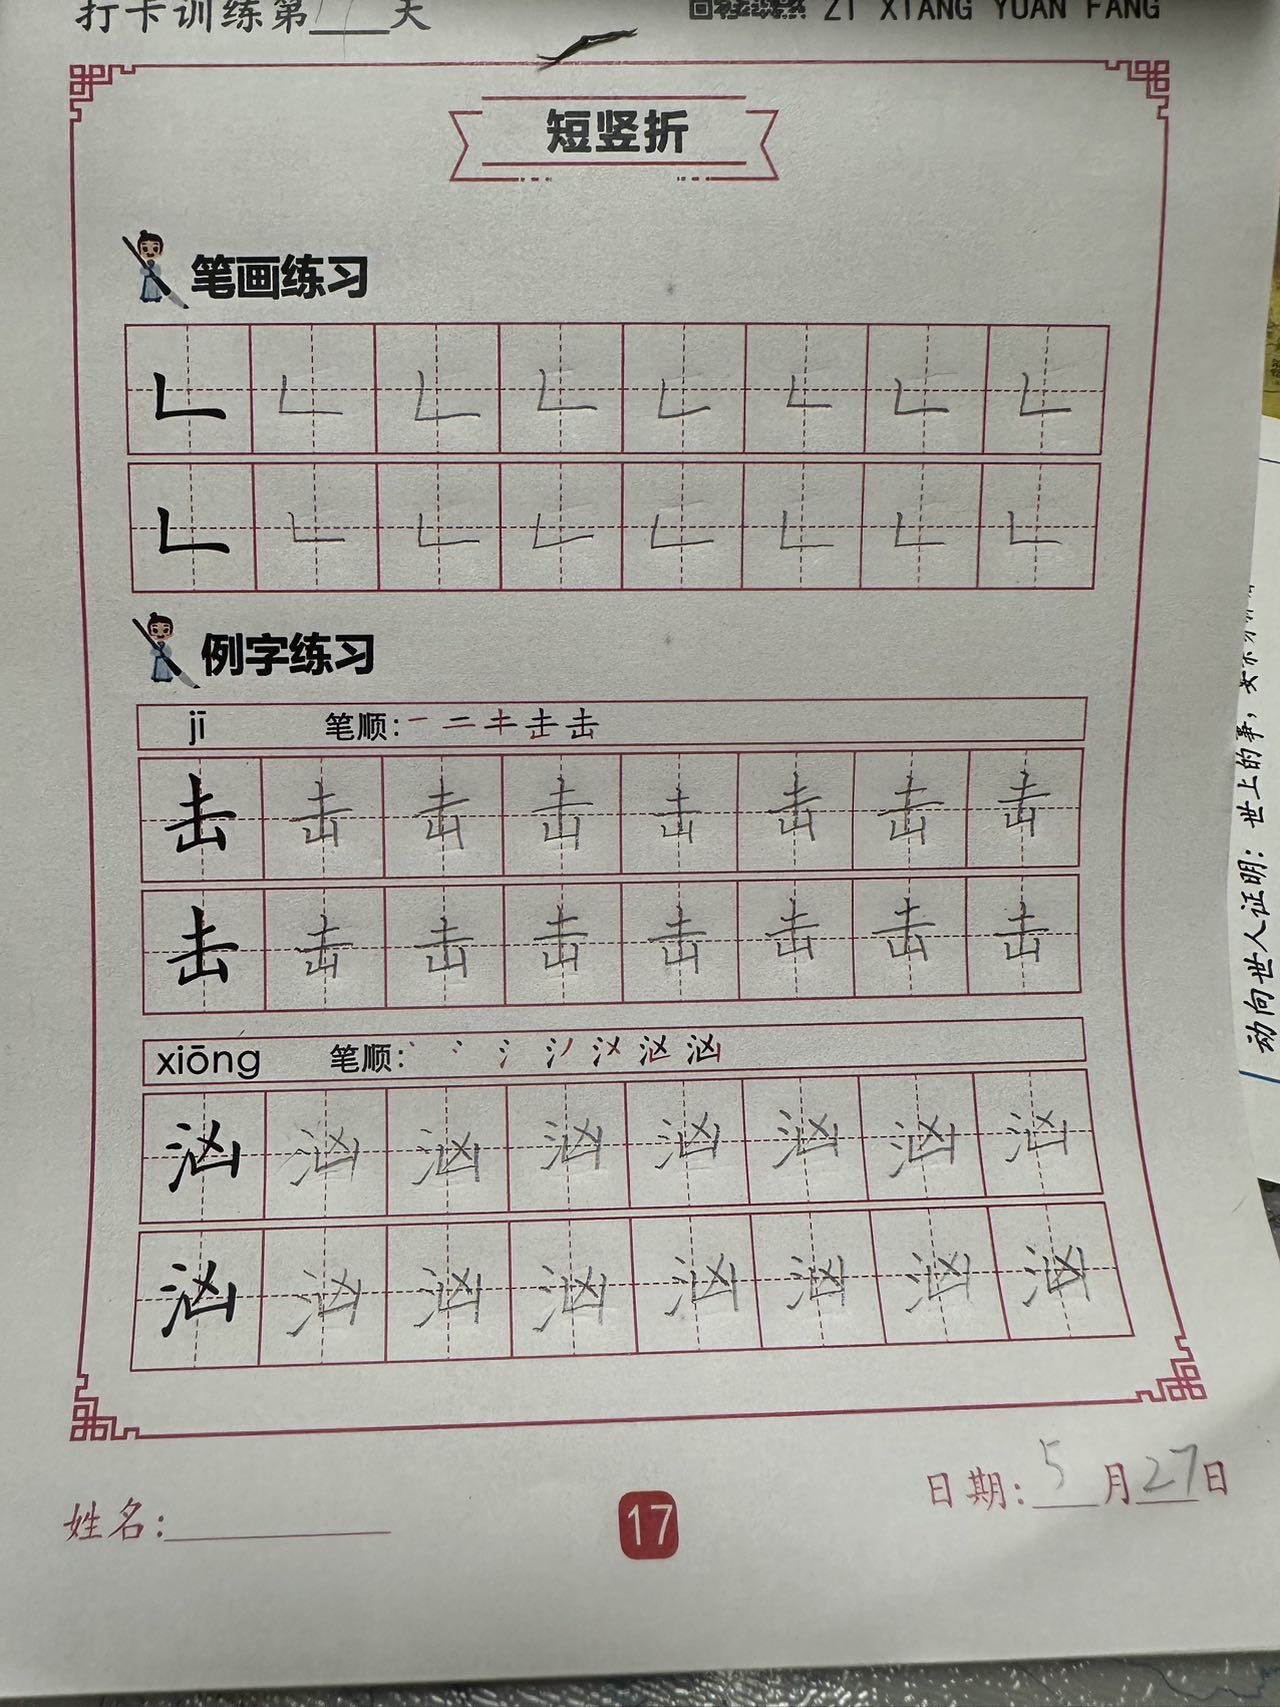 打卡训练第17天
ZI XIANG YUAN FANG
短竖折
笔画练习
例字练习
jī 笔顺: 一 二 キ 击 击
击 击 击 击 击 击 击 击
击 击 击 击 击 击 击 击
xiōng 笔顺:
汹 汹 汹 汹 汹 汹 汹 汹
汹 汹 汹 汹 汹 汹 汹 汹
姓名:
17
日期: 5 月 27 日
动向世人证明: 世上的事,